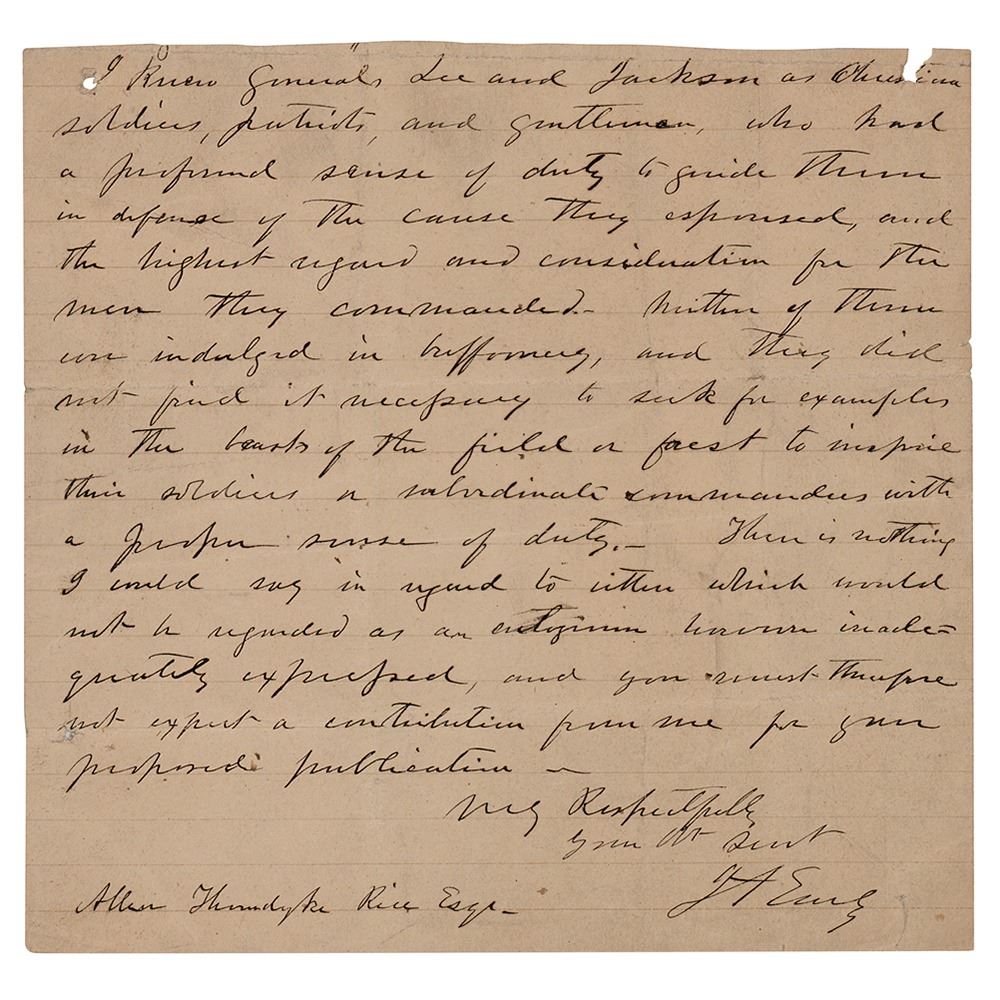 I knew Generals Lee and Jackson as Christian
soldiers, patriots, and gentlemen, who had
a profound sense of duty to guide them
in defense of the cause they espoused, and
the highest regard and consideration for the
men they commanded.- Neither of them
ever indulged in buffoonery, and they did
not find it necessary to seek for examples
in the beasts of the field or forest to inspire
their soldiers or subordinate commanders with
a proper sense of duty.- There is nothing
I could say in regard to either which would
not be regarded as an eulogium however inade=
quately expressed, and you must therefore
not expect a contribution from me for your
proposed publication -
Very Respectfully
Your Obt Servt
J A Early
Allen Thorndyke Rice Esqr-